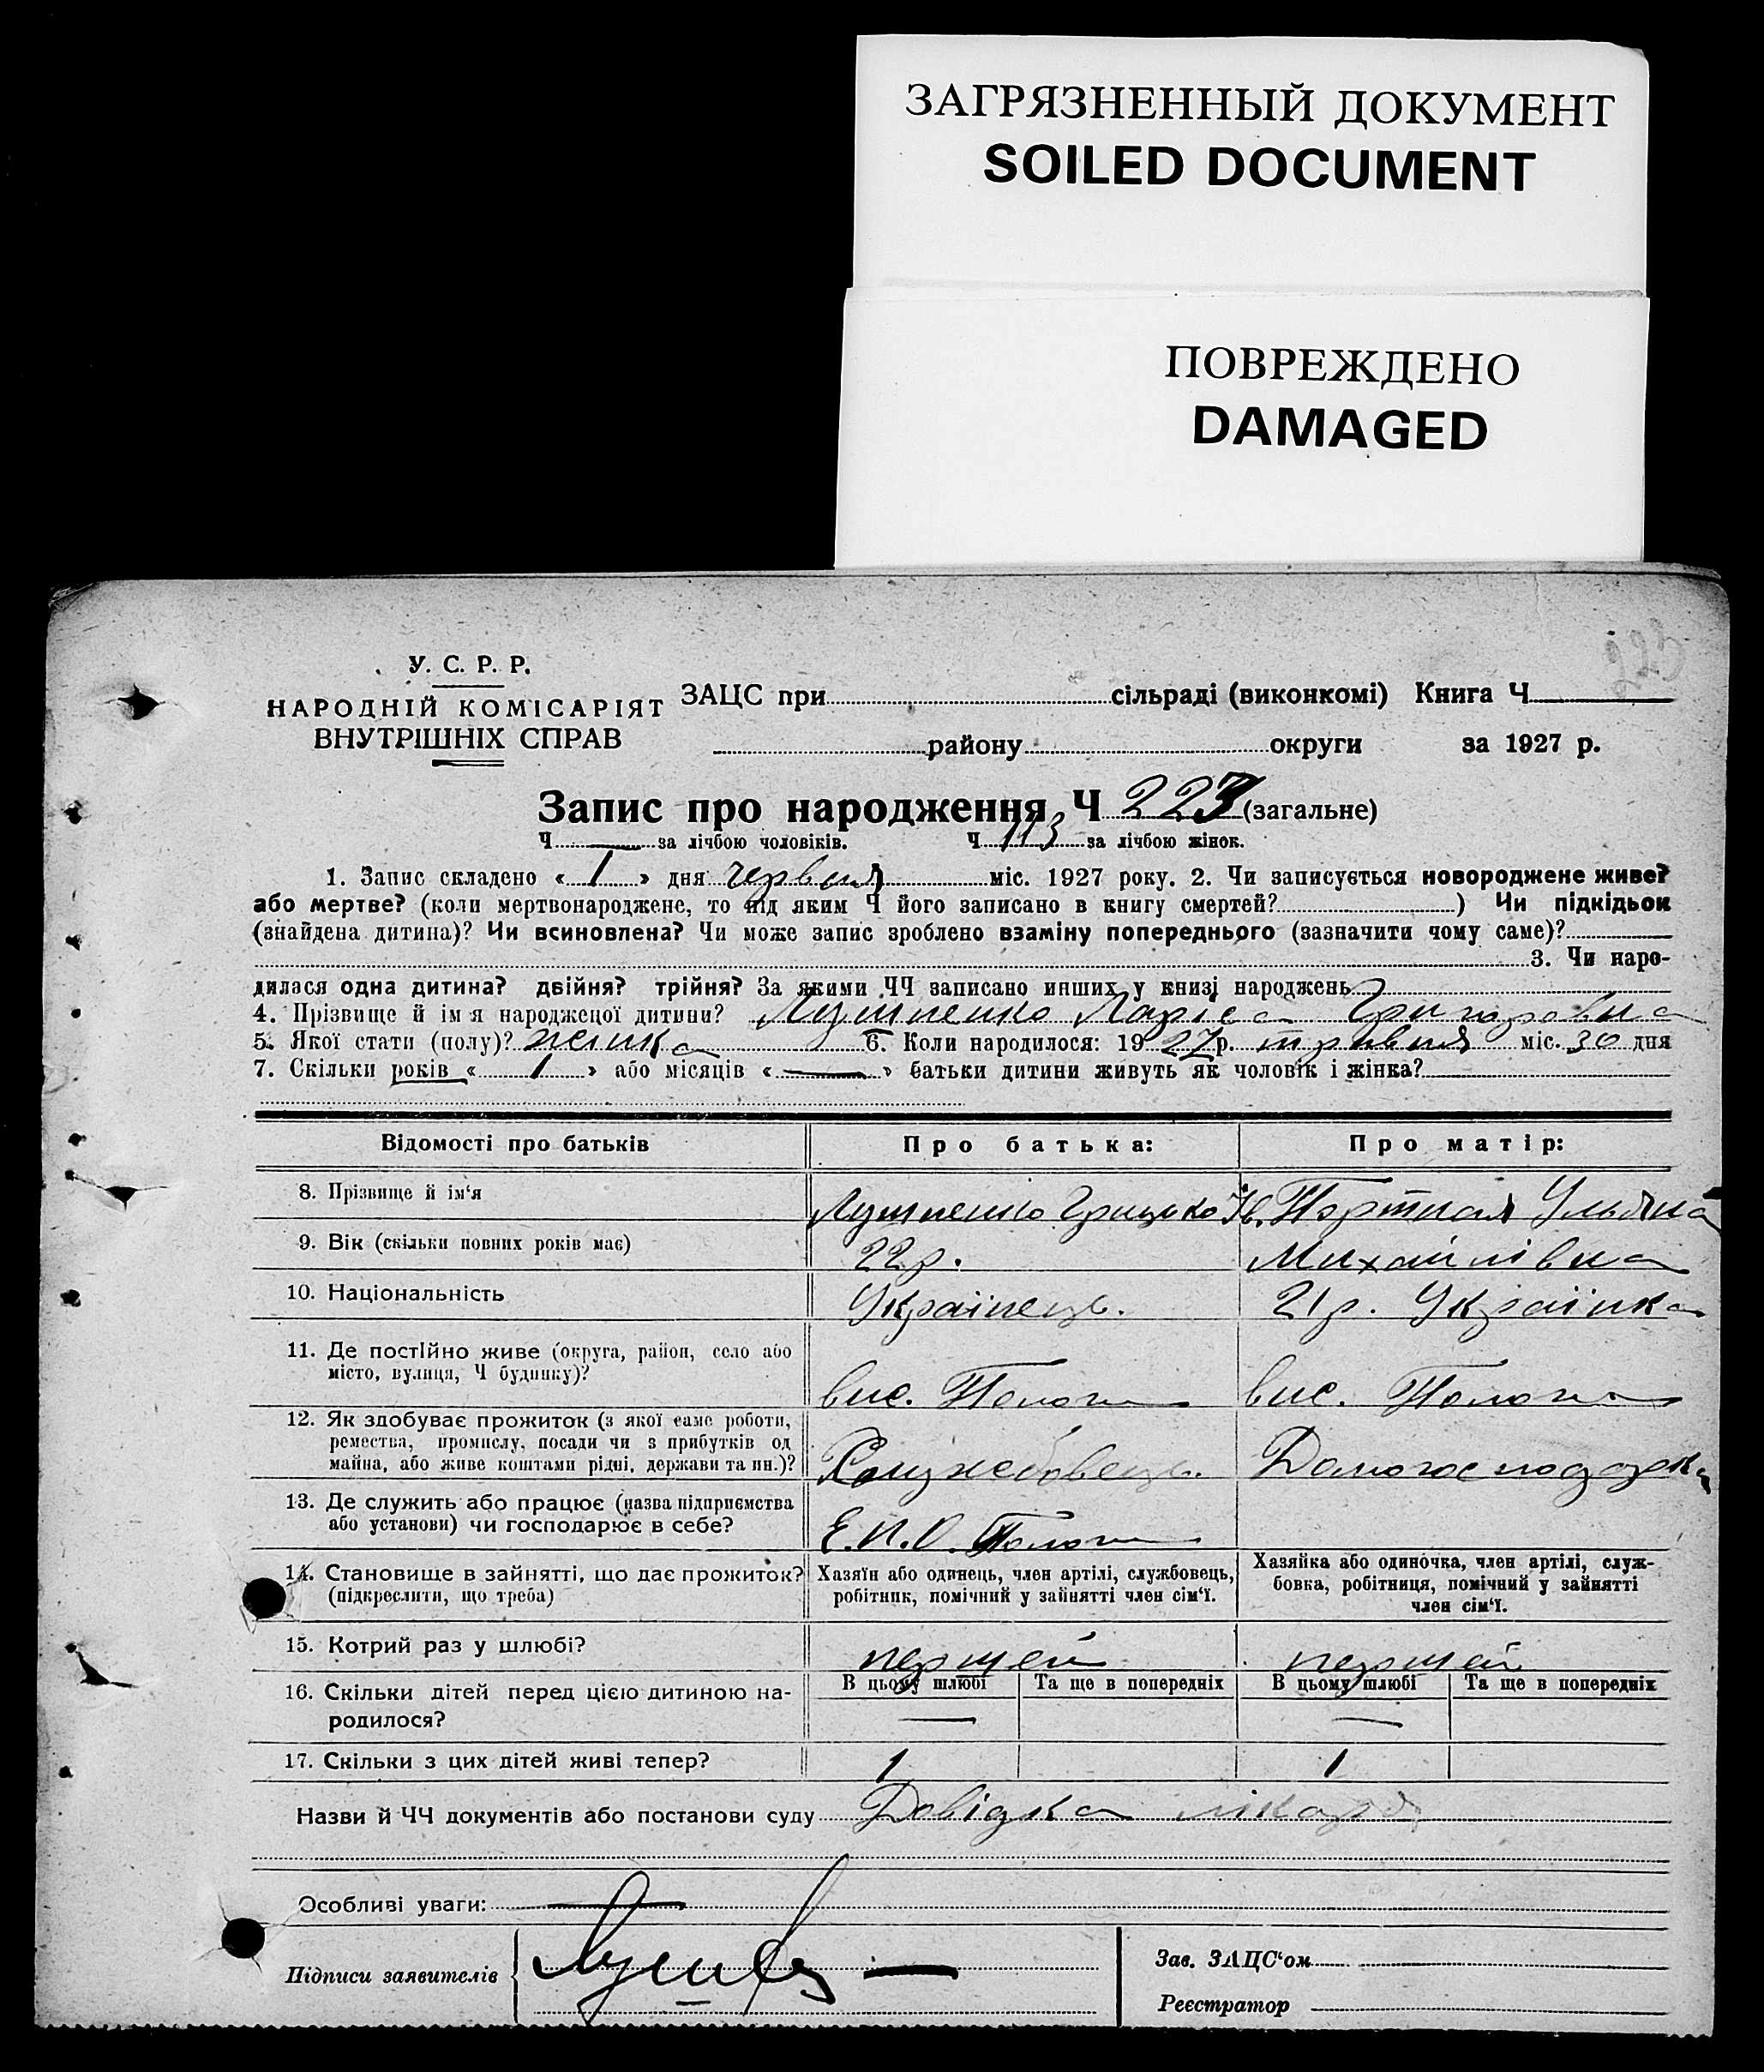 ЗАГРЯЗНЕННЫЙ ДОКУМЕНТ
SOILED DOCUMENT
ПОВРЕЖДЕНО
DAMAGED
У. С. Р. Р.
НАРОДНІЙ КОМІСАРІЯТ
ВНУТРІШНІХ СПРАВ
ЗАЦС при сільраді (виконкомі) Книга Ч
району округи за 1927 р.
Запис про народження Ч 223 (загальне)
Ч — за лічбою чоловіків. Ч 113 за лічбою жінок.
1. Запис складено « 1 » дня червня міс. 1927 року. 2. Чи записується новороджене живе?
або мертве? (коли мертвонароджене, то під яким Ч його записано в книгу смертей? ) Чи підкідьок
(знайдена дитина)? Чи всиновлена? Чи може запис зроблено взаміну попереднього (зазначити чому саме)?
3. Чи наро-
дилася одна дитина? двійня? трійня? За якими ЧЧ записано инших у книзі народжень
4. Прізвище й ім'я народженої дитини? Григоровна
5. Якої стати (полу)? жінка 6. Коли народилося: 1927 р. травня міс. 30 дня
7. Скільки років « 1 » або місяців « — » батьки дитини живуть як чоловік і жінка?
Відомості про батьків Про батька: Про матір:
8. Прізвище й ім'я Грицько Ів. Портная Ульяна
9. Вік (скільки повних років має) 22 р. Михайлівна
10. Національність Українець. 21 р. Українка
11. Де постійно живе (округа, район, село або
місто, вулиця, Ч будинку)? вис. Пологи вис. Пологи
12. Як здобуває прожиток (з якої саме роботи,
ремества, промислу, посади чи з прибутків од
майна, або живе коштами рідні, держави та ин.)? Служебовець. Домогосподарка
13. Де служить або працює (назва підприємства
або установи) чи господарює в себе? Е.П.О. Пологи
14. Становище в зайнятті, що дає прожиток?
(підкреслити, що треба)
Хазяїн або одинець, член артілі, службовець,
робітник, помічний у зайнятті член сім'ї.
Хазяйка або одиночка, член артілі, служ-
бовка, робітниця, помічний у зайнятті
член сім'ї.
15. Котрий раз у шлюбі? першей першей
16. Скільки дітей перед цією дитиною на-
родилося?
В цьому шлюбі Та ще в попередніх В цьому шлюбі Та ще в попередніх
— —
17. Скільки з цих дітей живі тепер? 1 1
Назви й ЧЧ документів або постанови суду Довідка лікаря
Особливі уваги: —
Підписи заявителів
Зав. ЗАЦС'ом
Реєстратор